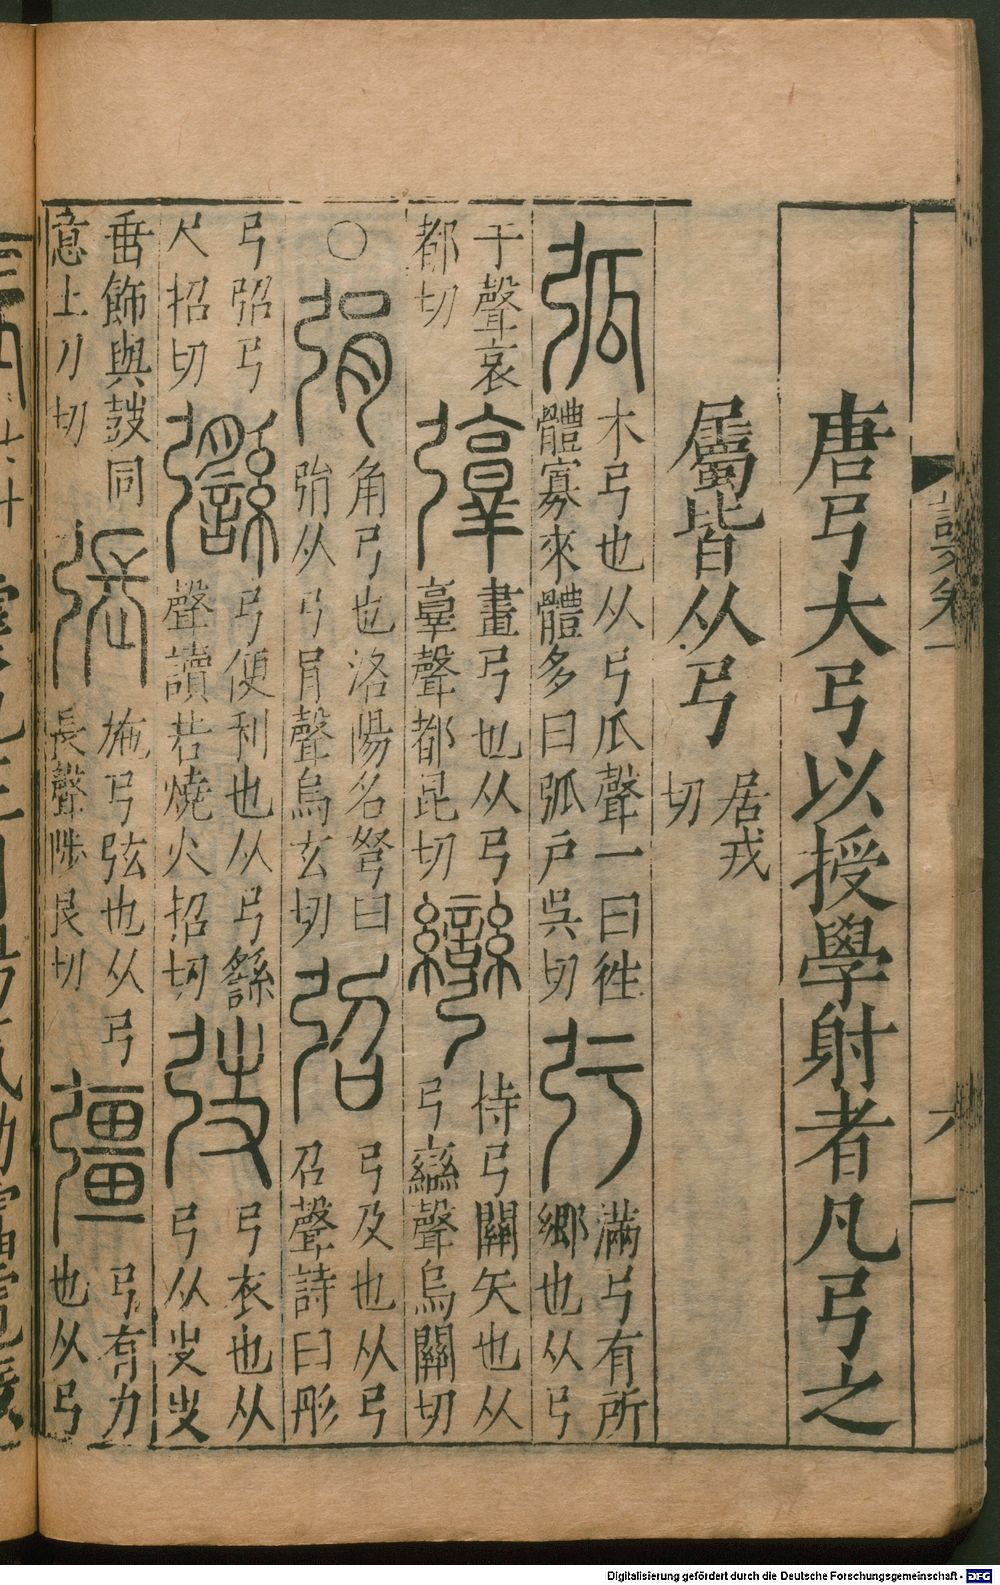 說文卷一
六
唐弓大弓以授學射者凡弓之
屬皆从弓居戎切
弧木弓也从弓瓜聲一曰徃體寡來體多曰弧戶吳切弙滿弓有所鄉也从弓
于聲哀都切𢐹畫弓也从弓𦎫聲都昆切彎持弓關矢也从弓䜌聲烏關切
○弲角弓也洛陽名弩曰弲从弓肙聲烏玄切弨弓及也从弓召聲詩曰彤
弓弨弓尺招切𢑆弓便利也从弓繇聲讀若燒火招切弢弓衣也从弓从㞢㞢
垂飾與鼓同意土刀切張施弓弦也从弓長聲陟良切彊弓有力也从弓
Digitalisierung gefördert durch die Deutsche Forschungsgemeinschaft - DFG